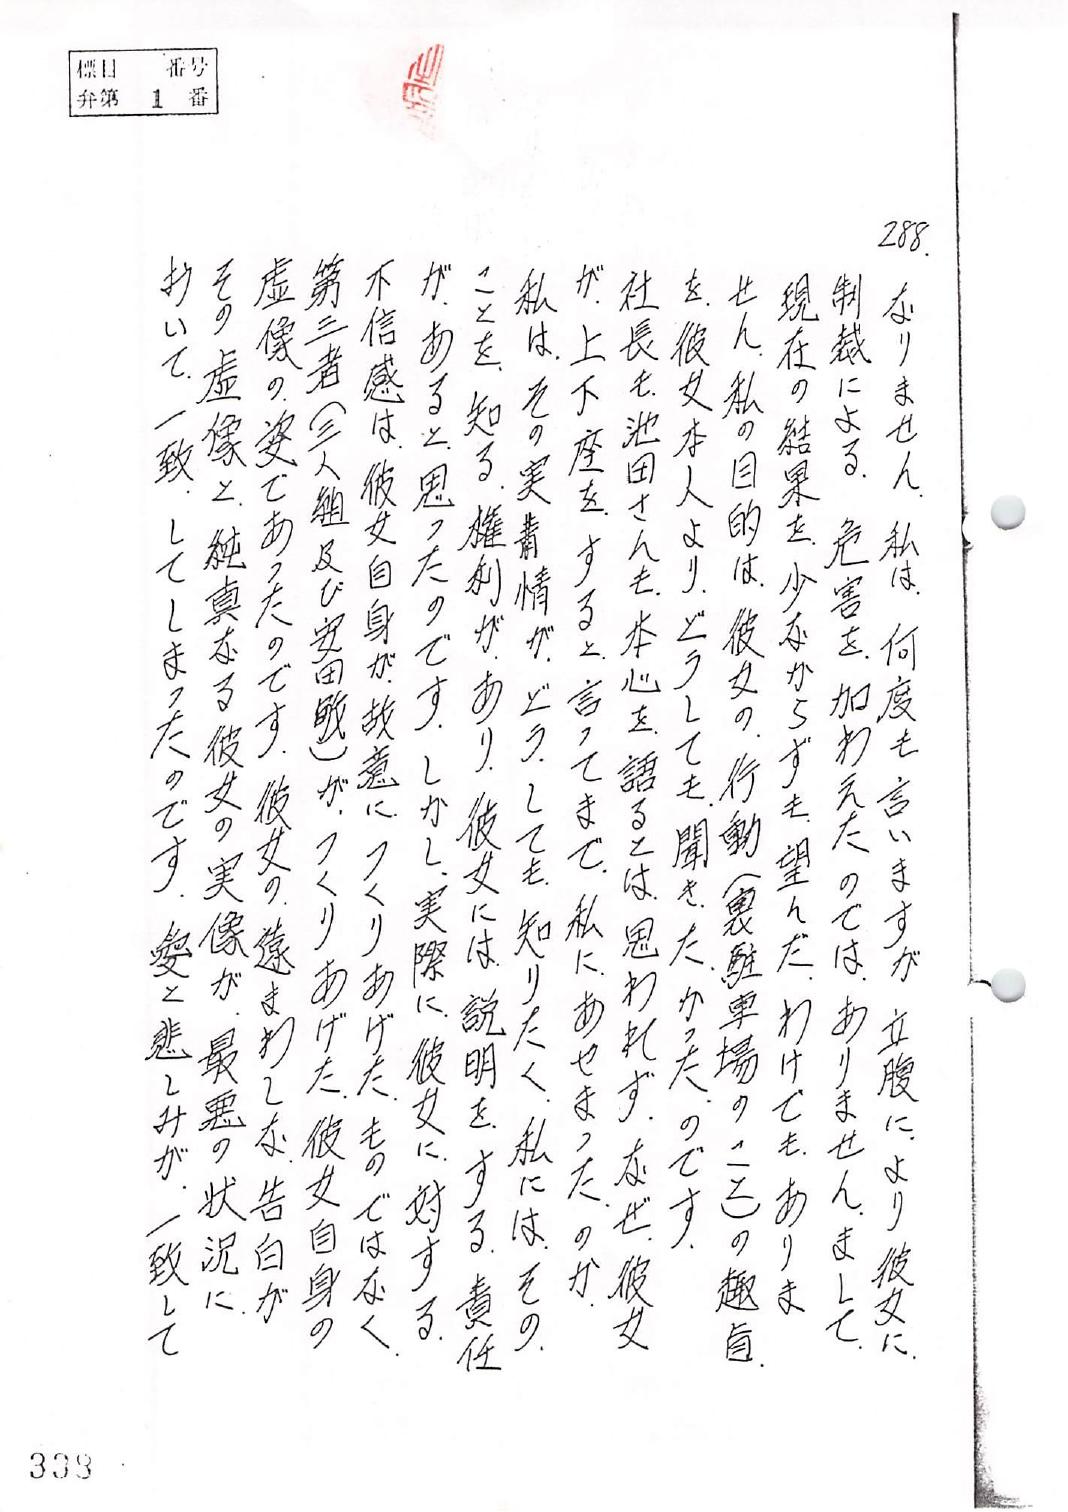 標目 番号
弁第 1 番
288.
なりません、私は、何度も言いますが 立腹に、より彼女に、
制裁による、危害を、加わえたのでは、ありません、まして、
現在の結果を、少なからずも、望んだ、わけでも、ありま
せん、私の目的は、彼女の、行動(裏駐車場のこと)の趣旨、
を、彼女本人より、どうしても、聞きた、かった、のです、
社長も、池田さんも、本心を、語るとは、思われず、なぜ、彼女
が、上下座を、すると、言ってまで、私に、あやまった、のか、
私は、その実情が、どう、しても、知りたく、私には、その、
ことを、知る、権利が、あり、彼女には、説明を、する、責任
が、あると、思ったのです、しかし、実際に、彼女に、対する、
不信感は、彼女自身が、故意に、つくりあげた、ものではなく、
第三者(三人組及び安田)が、つくりあげた、彼女自身の
虚像の、姿であったのです、彼女の、遠まわしな、告白が
その虚像と、純真なる彼女の実像が、最悪の状況に、
おいて、一致、してしまったのです、愛と悲しみが、一致して
338